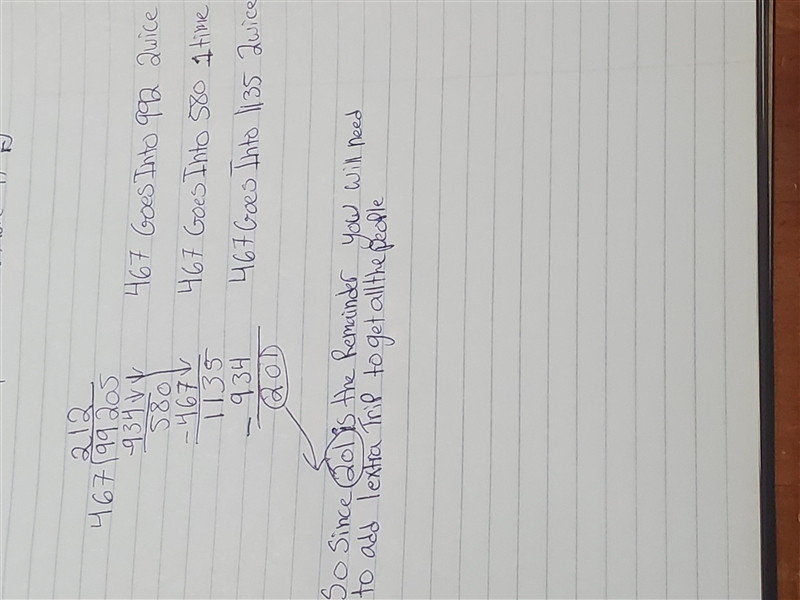 212
467)99205
-934↓↓ 467 Goes Into 992 2wice
580
-467↓ 467 Goes Into 580 1 time
1135
-934 467 Goes Into 1135 2wice
201
So Since 201 is the Remainder you will need
to add 1 extra Trip to get all the People